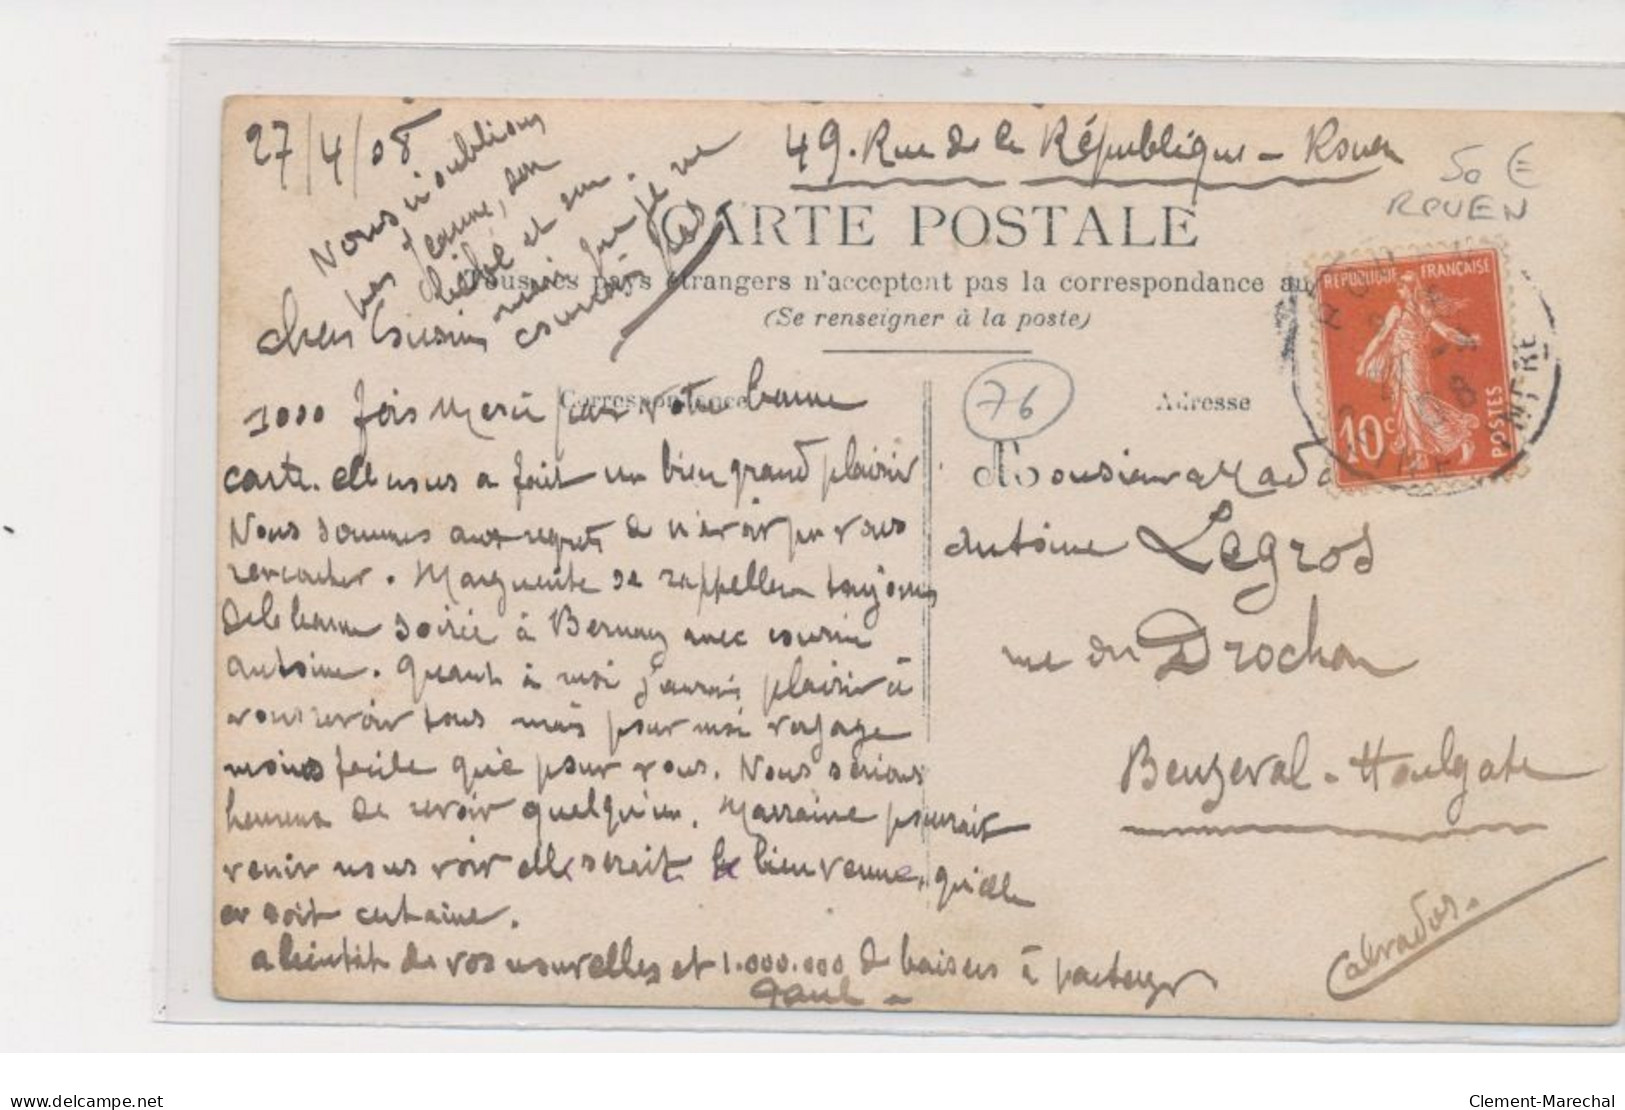 27/4/08
49. Rue de la République - Rouen
50 €
ROUEN
Nous n'oublions
pas Jeanne, son
bébé et son
mari que je ne
connais pas
CARTE POSTALE
Tous les pays étrangers n'acceptent pas la correspondance au
(Se renseigner à la poste)
Chers Cousins
Correspondance
76
Adresse
REPUBLIQUE FRANÇAISE
10c
POSTES
1000 fois merci pour votre bonne
carte. elle nous a fait un bien grand plaisir
Nous sommes aux regrets de n'avoir pu vous
rencontrer. Marguerite se rappellera toujours
de la bonne soirée à Bernay avec cousin
antoine. Quant à moi j'aurais plaisir à
vous revoir tous mais pour moi voyage
moins facile que pour vous. Nous serions
heureux de revoir quelqu'un. Marraine pourrait
venir nous voir elle serait la bienvenue, qu'elle
en soit certaine.
a bientôt de vos nouvelles et 1.000.000 de baisers à partager
Paul
Monsieur & Mada
antoine Legros
rue du Drochon
Beuzeval - Houlgate
Calvados.
delcampe.net
Clement-Marechal